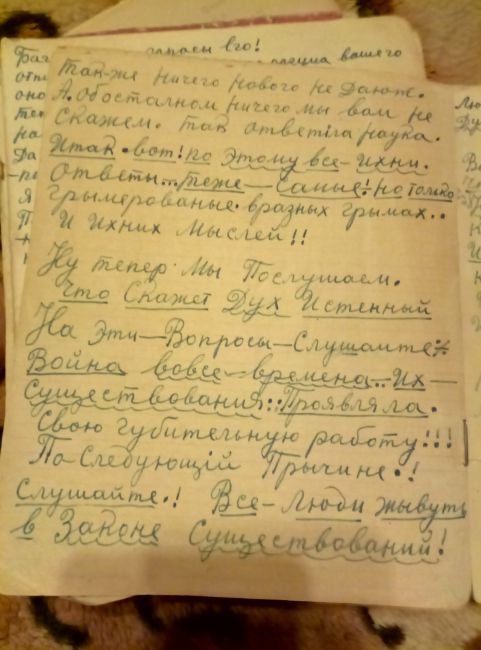 так-же ничего нового не дают.
А. обосталном ничего мы вам не
скажем. так ответіла наука.
Итак. вот! по этому все- ихни.
ответы... теже — самые! но только
грымерованые. вразных грымах..
И Ихних Мыслей!!
Ну тепер Мы Послушаем.
что Скажет Дух Истенный
На Эти — Вопросы — Слушайте:
Война вовсе — времена.. Их —
Существования:. Проявляла.
Свою губительную работу!!!
По-Следующій Прычине.!
Слушайте.! Все- Люди жывуть
в Законе Существований!